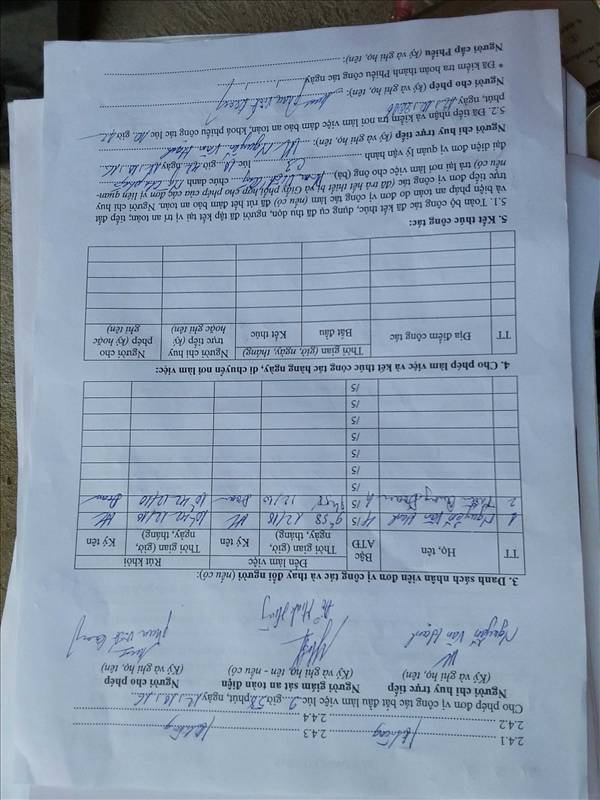 2.4.1 Không 2.4.3 Không
2.4.2 2.4.4
Cho phép đơn vị công tác bắt đầu làm việc lúc 9 giờ 58 phút, ngày 12, 10, 16
Người chỉ huy trực tiếp Người giám sát an toàn điện Người cho phép
(Ký và ghi họ, tên) (Ký và ghi họ, tên - nếu có) (Ký và ghi họ, tên)
Nguyễn Văn Hạnh
3. Danh sách nhân viên đơn vị công tác và thay đổi người (nếu có):
TT Họ, tên Bậc ATĐ Đến làm việc Rút khỏi
Thời gian (giờ, ngày, tháng) Ký tên Thời gian (giờ, ngày, tháng) Ký tên
1 Nguyễn Văn Hạnh 4/5 9h58 12/10 10h42 12/10
2 4/5 9h58 12/10 Đoan 10h42 12/10 Đoan
/5
/5
/5
/5
/5
/5
/5
4. Cho phép làm việc và kết thúc công tác hàng ngày, di chuyển nơi làm việc:
TT Địa điểm công tác Thời gian (giờ, ngày, tháng) Người chỉ huy trực tiếp (ký hoặc ghi tên) Người cho phép (ký hoặc ghi tên)
Bắt đầu Kết thúc
5. Kết thúc công tác:
5.1. Toàn bộ công tác đã kết thúc, dụng cụ đã thu dọn, người đã tập kết tại vị trí an toàn; tiếp đất
và biện pháp an toàn do đơn vị công tác làm (nếu có) đã rút hết đảm bảo an toàn. Người chỉ huy
trực tiếp đơn vị công tác (đã trả hết thiết bị và Giấy phối hợp cho phép của các đơn vị liên quan-
nếu có) trả lại nơi làm việc cho ông (bà) chức danh
đại diện đơn vị quản lý vận hành lúc giờ, ngày
Người chỉ huy trực tiếp (ký và ghi họ, tên): Nguyễn Văn Hạnh
5.2. Đã tiếp nhận và kiểm tra nơi làm việc đảm bảo an toàn, khoá phiếu công tác lúc 10 giờ
phút, ngày 12, 10, 2016
Người cho phép (ký và ghi họ, tên):
* Đã kiểm tra hoàn thành Phiếu công tác ngày
Người cấp Phiếu (ký và ghi họ, tên):